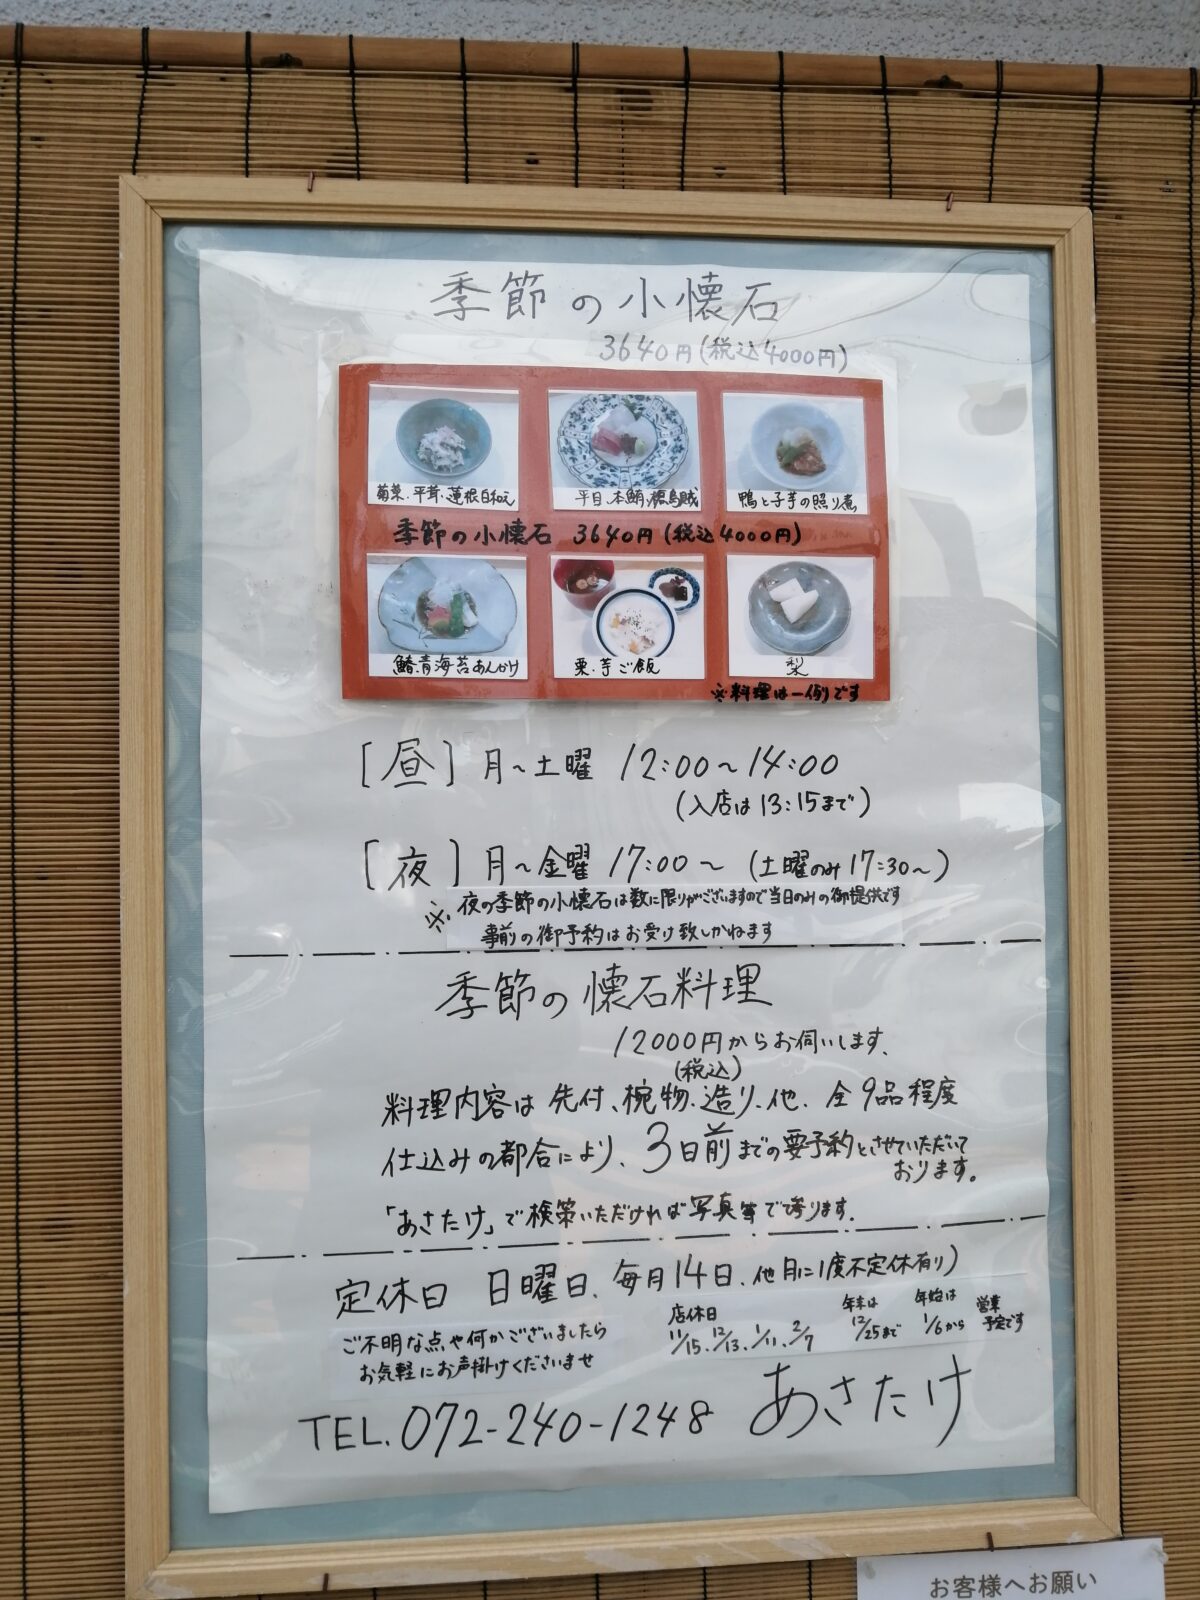 季節の小懐石
3640円(税込4000円)
菊菜、平茸、蓮根白和え
平目、本鮪、烏賊
鴨と子芋の照り煮
季節の小懐石 3640円(税込4000円)
鰆、青海苔あんかけ
栗、芋ご飯
梨
※料理は一例です
[昼] 月〜土曜 12:00〜14:00
(入店は13:15まで)
[夜] 月〜金曜 17:00〜 (土曜のみ17:30〜)
※ 夜の季節の小懐石は数に限りがございますので当日のみの御提供です
事前の御予約はお受け致しかねます
季節の懐石料理
12000円からお伺いします、
(税込)
料理内容は 先付、椀物、造り、他、全9品程度
仕込みの都合により、3日前までの要予約とさせていただいて
おります。
「あさたけ」で検索いただければ写真等で参ります、
定休日 日曜日、毎月14日、他月に1度不定休有り)
店休日
11/15、12/13、1/11、2/7
年末は
12/25まで
年始は
1/6から
営業
予定です
ご不明な点や何かございましたら
お気軽にお声掛けくださいませ
TEL.072-240-1248 あさたけ
お客様へお願い